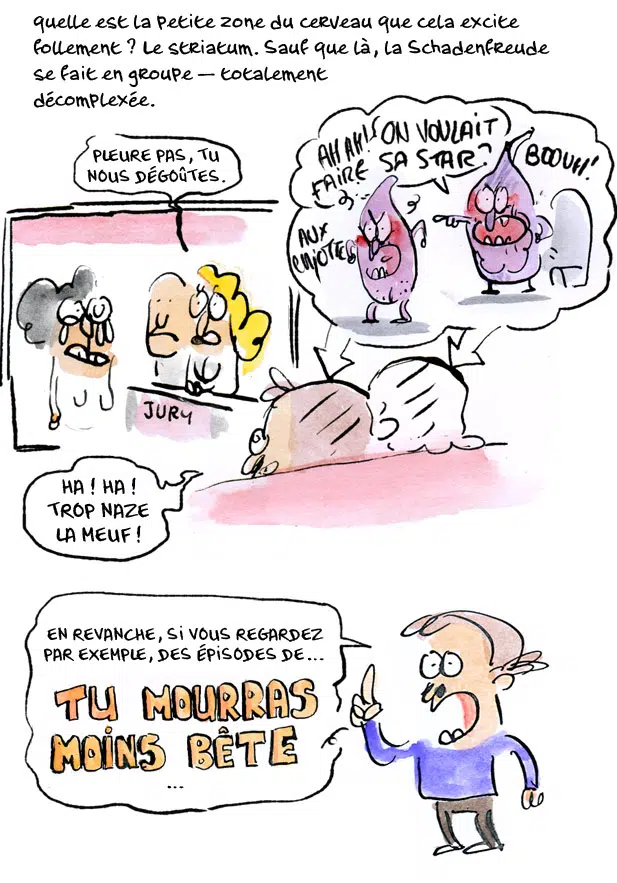 quelle est la petite zone du cerveau que cela excite
follement ? Le striatum. Sauf que là, la Schadenfreude
se fait en groupe — totalement
décomplexée.
PLEURE PAS, TU
NOUS DÉGOÛTES.
AH AH! ON VOULAIT
FAIRE SA STAR?
BOOUH!
AUX
CHIOTTES
JURY
HA ! HA !
TROP NAZE
LA MEUF !
EN REVANCHE, SI VOUS REGARDEZ
PAR EXEMPLE, DES ÉPISODES DE...
TU MOURRAS
MOINS BÊTE
...